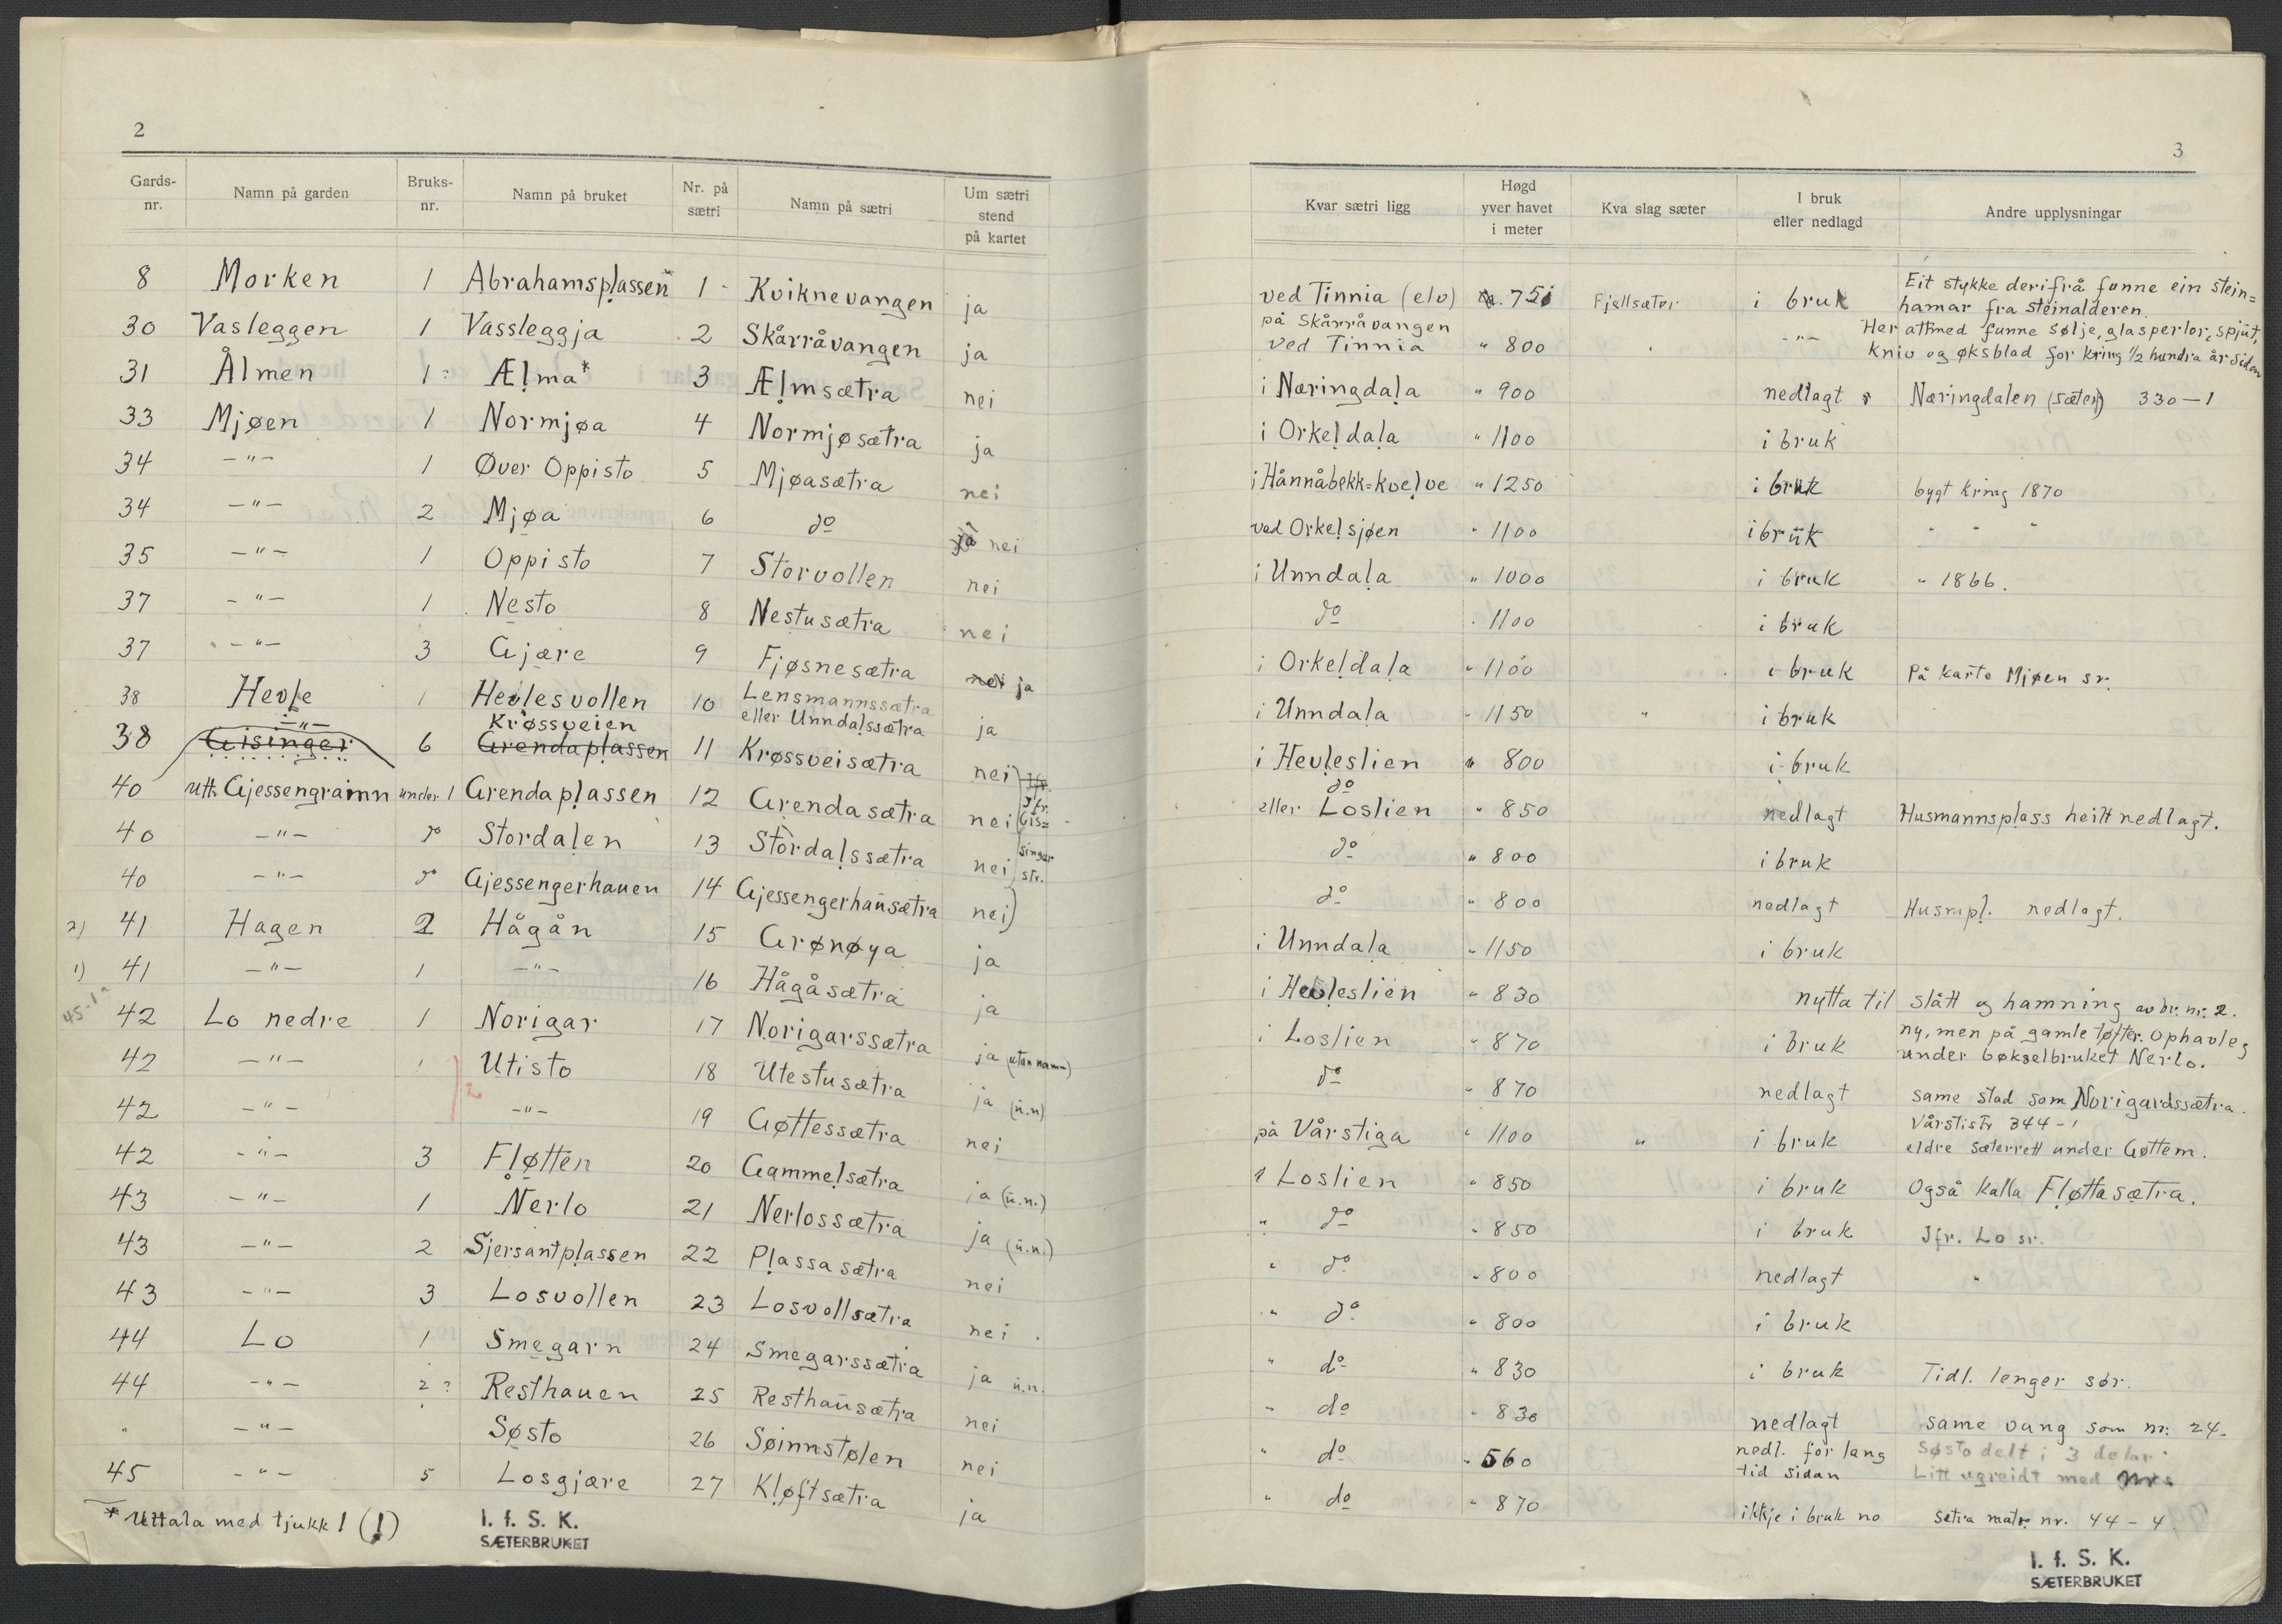 2
Gards-nr. Namn på garden Bruks-nr. Namn på bruket Nr. på sætri Namn på sætri Um sætri stend på kartet
8 Morken 1 Abrahamspḷassen* 1 Kviknevangen ja
30 Vasleggen 1 Vassleggja 2 Skårråvangen ja
31 Ålmen 1 Æḷma* 3 Æḷmsætra nei
33 Mjøen 1 Normjøa 4 Normjøsætra ja
34 -"- 1 Øver Oppisto 5 Mjøasætra nei
34 -"- 2 Mjøa 6 do ja nei
35 -"- 1 Oppisto 7 Storvollen nei
37 -"- 1 Nesto 8 Nestusætra nei
37 -"- 3 Gjære 9 Fjøsnesætra nei ja
38 Hevḷe 1 Hevlesvollen 10 Lensmannssætra eller Unndaḷssætra ja
38 Gisinger -"- 6 Krøssveien Grendapḷassen 11 Krøssveisætra nei
40 utt. Gjessengrainn under 1 Grendapḷassen 12 Grendasætra nei Jfr. Gis=
40 -"- do Stordaḷen 13 Stordaḷssætra nei singer str.
40 -"- do Gjessengerhauen 14 Gjessengerhausætra nei
2) 41 Hagen 2 Hågån 15 Grønøya ja
1) 41 -"- 1 -"- 16 Hågåsætra ja
45-1 42 Lo nedre 1 Norigar 17 Norigarssætra ja (utan namn)
42 -"- Utisto 18 Utestusætra ja (u.n)
42 -"- 2 -"- 19 Gøttessætra nei
42 -"- 3 Fḷøtten 20 Gammeḷsætra ja (u.n.)
43 -"- 1 Nerlo 21 Nerlossætra ja (u.n.)
43 -"- 2 Sjersantpḷassen 22 Pḷassasætra nei
43 -"- 3 Losvollen 23 Losvollsætra nei
44 Lo 1 Smegarn 24 Smegarssætra ja u.n.
44 -"- 2? Resthauen 25 Resthausætra nei
" -"- Søsto 26 Søinnstølen nei
45 -"- 5 Losgjære 27 Kḷøftsætra ja
* Uttala med tjukk l (ḷ)
I. f. S. K.
SÆTERBRUKET
3
Kvar sætri ligg Høgd yver havet i meter Kva slag sæter I bruk eller nedlagd Andre upplysningar
ved Tinnia (elv) 750 Fjellsæter i bruk Eit stykke derifrå funne ein stein=
hamar fra steinalderen.
på Skårråvangen
ved Tinnia " 800 -"- Her attmed funne sølje, glasperlor, spjut,
kniv og øksblad for kring 1/2 hundra år sidan
i Næringdaḷa " 900 nedlagt Næringdalen (sæter) 330-1
i Orkeḷdaḷa " 1100 i bruk
i Hånnåbekk=kveḷve " 1250 i bruk bygt kring 1870
ved Orkeḷsjøen " 1100 i bruk " " "
i Unndaḷa " 1000 i bruk " 1866.
do " 1100 i bruk
i Orkeḷdaḷa " 1100 i bruk På karte Mjøen sr.
i Unndaḷa " 1150 " i bruk
i Hevḷeslien " 800 i bruk
do
eller Loslien " 850 nedlagt Husmannspḷass heilt nedlagt.
do " 800 i bruk
do " 800 nedlagt Husmpḷ. nedlagt.
i Unndaḷa " 1150 i bruk
i Hevḷeslien " 830 nytta til slått og hamning av br. nr. 2.
i Loslien " 870 i bruk ny, men på gamle tøfter. Ophavleg
under bøkselbruket Nerlo.
do " 870 nedlagt same stad som Norigardssætra.
på Vårstiga " 1100 " i bruk Vårstistr 344-1
eldre sæterrett under Gøttem.
i Loslien " 850 i bruk Også kalla Fḷøttasætra.
" do " 850 i bruk Jfr. Lo sr.
" do " 800 nedlagt "
" do " 800 i bruk
" do " 830 i bruk Tidl. lenger sør.
" do " 830 nedlagt same vang som nr. 24.
" do " 560 nedl. for lang tid sidan Søsto delt i 3 delar
Litt ugreidt med
" do " 870 ikkje i bruk no sætra matr. nr. 44-4.
I. f. S. K.
SÆTERBRUKET